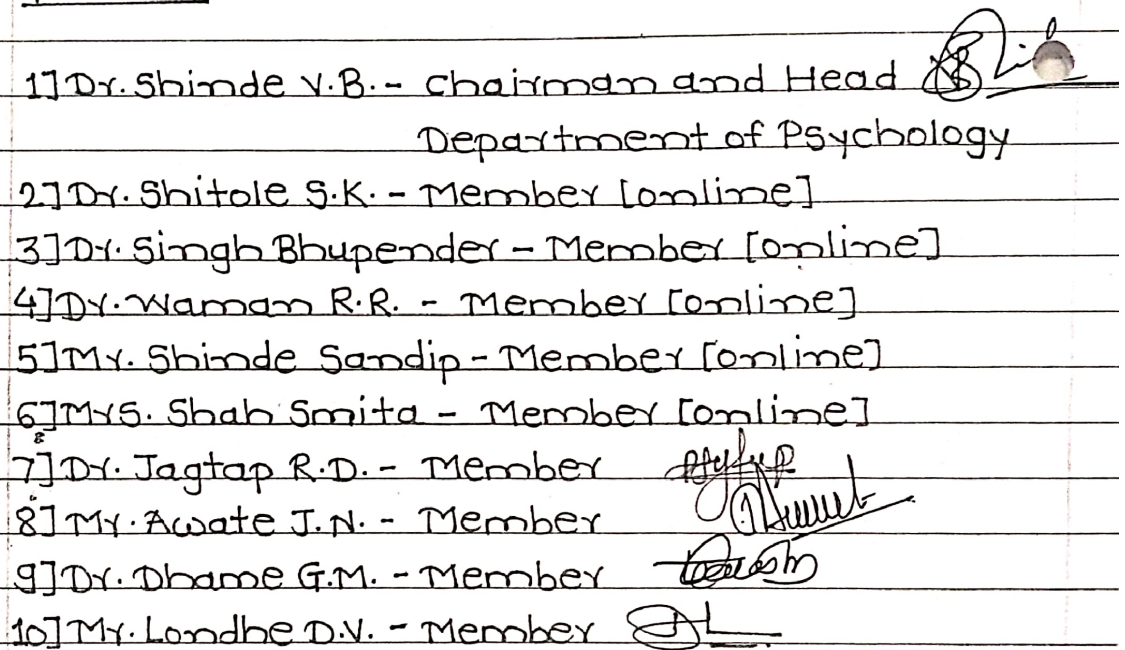 1] Dr. Shinde V.B. - Chairman and Head
Department of Psychology
2] Dr. Shitole S.K. - Member [online]
3] Dr. Singh Bhupender - Member [online]
4] Dr. Waman R.R. - Member [online]
5] Mr. Shinde Sandip - Member [online]
6] Mrs. Shah Smita - Member [online]
7] Dr. Jagtap R.D. - Member
8] Mr. Awate J.N. - Member
9] Dr. Dhame G.M. - Member
10] Mr. Londhe D.V. - Member